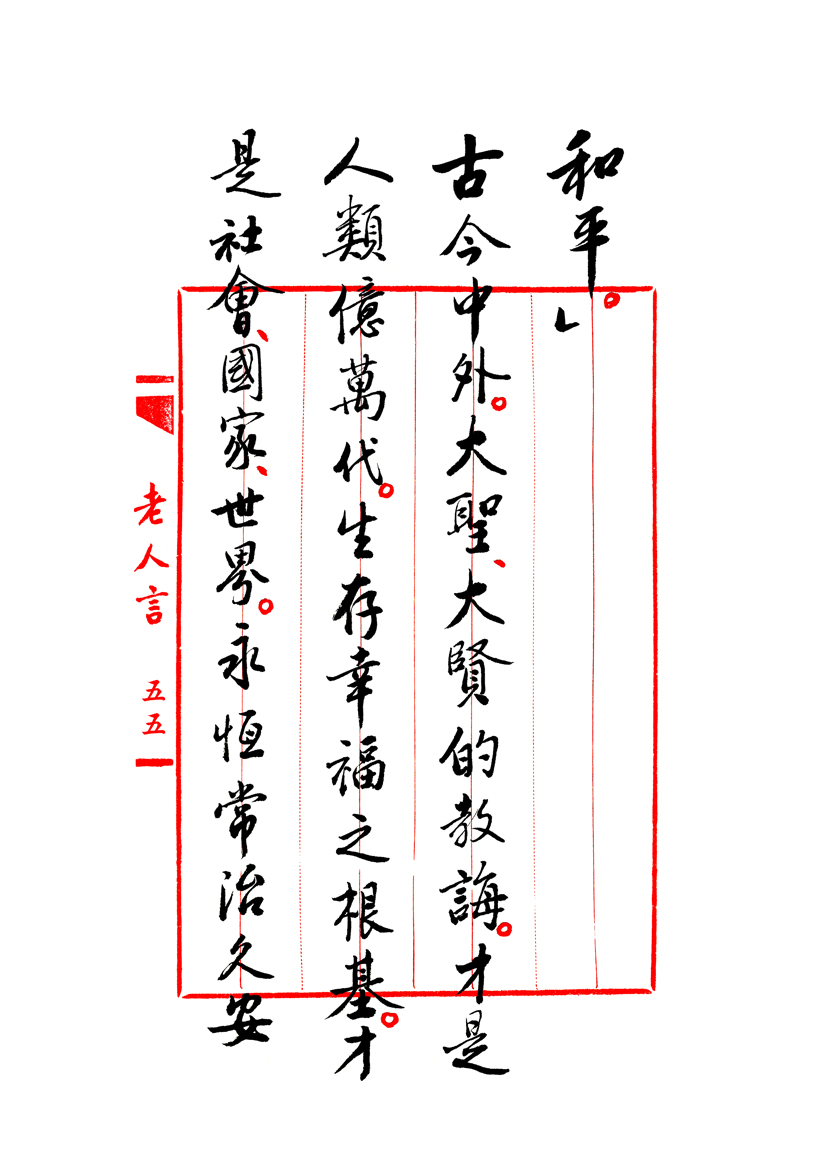 和平。」
古今中外。大聖、大賢的教誨。才是
人類億萬代。生存幸福之根基。才
是社會、國家、世界。永恆常治久安
老人言 五五